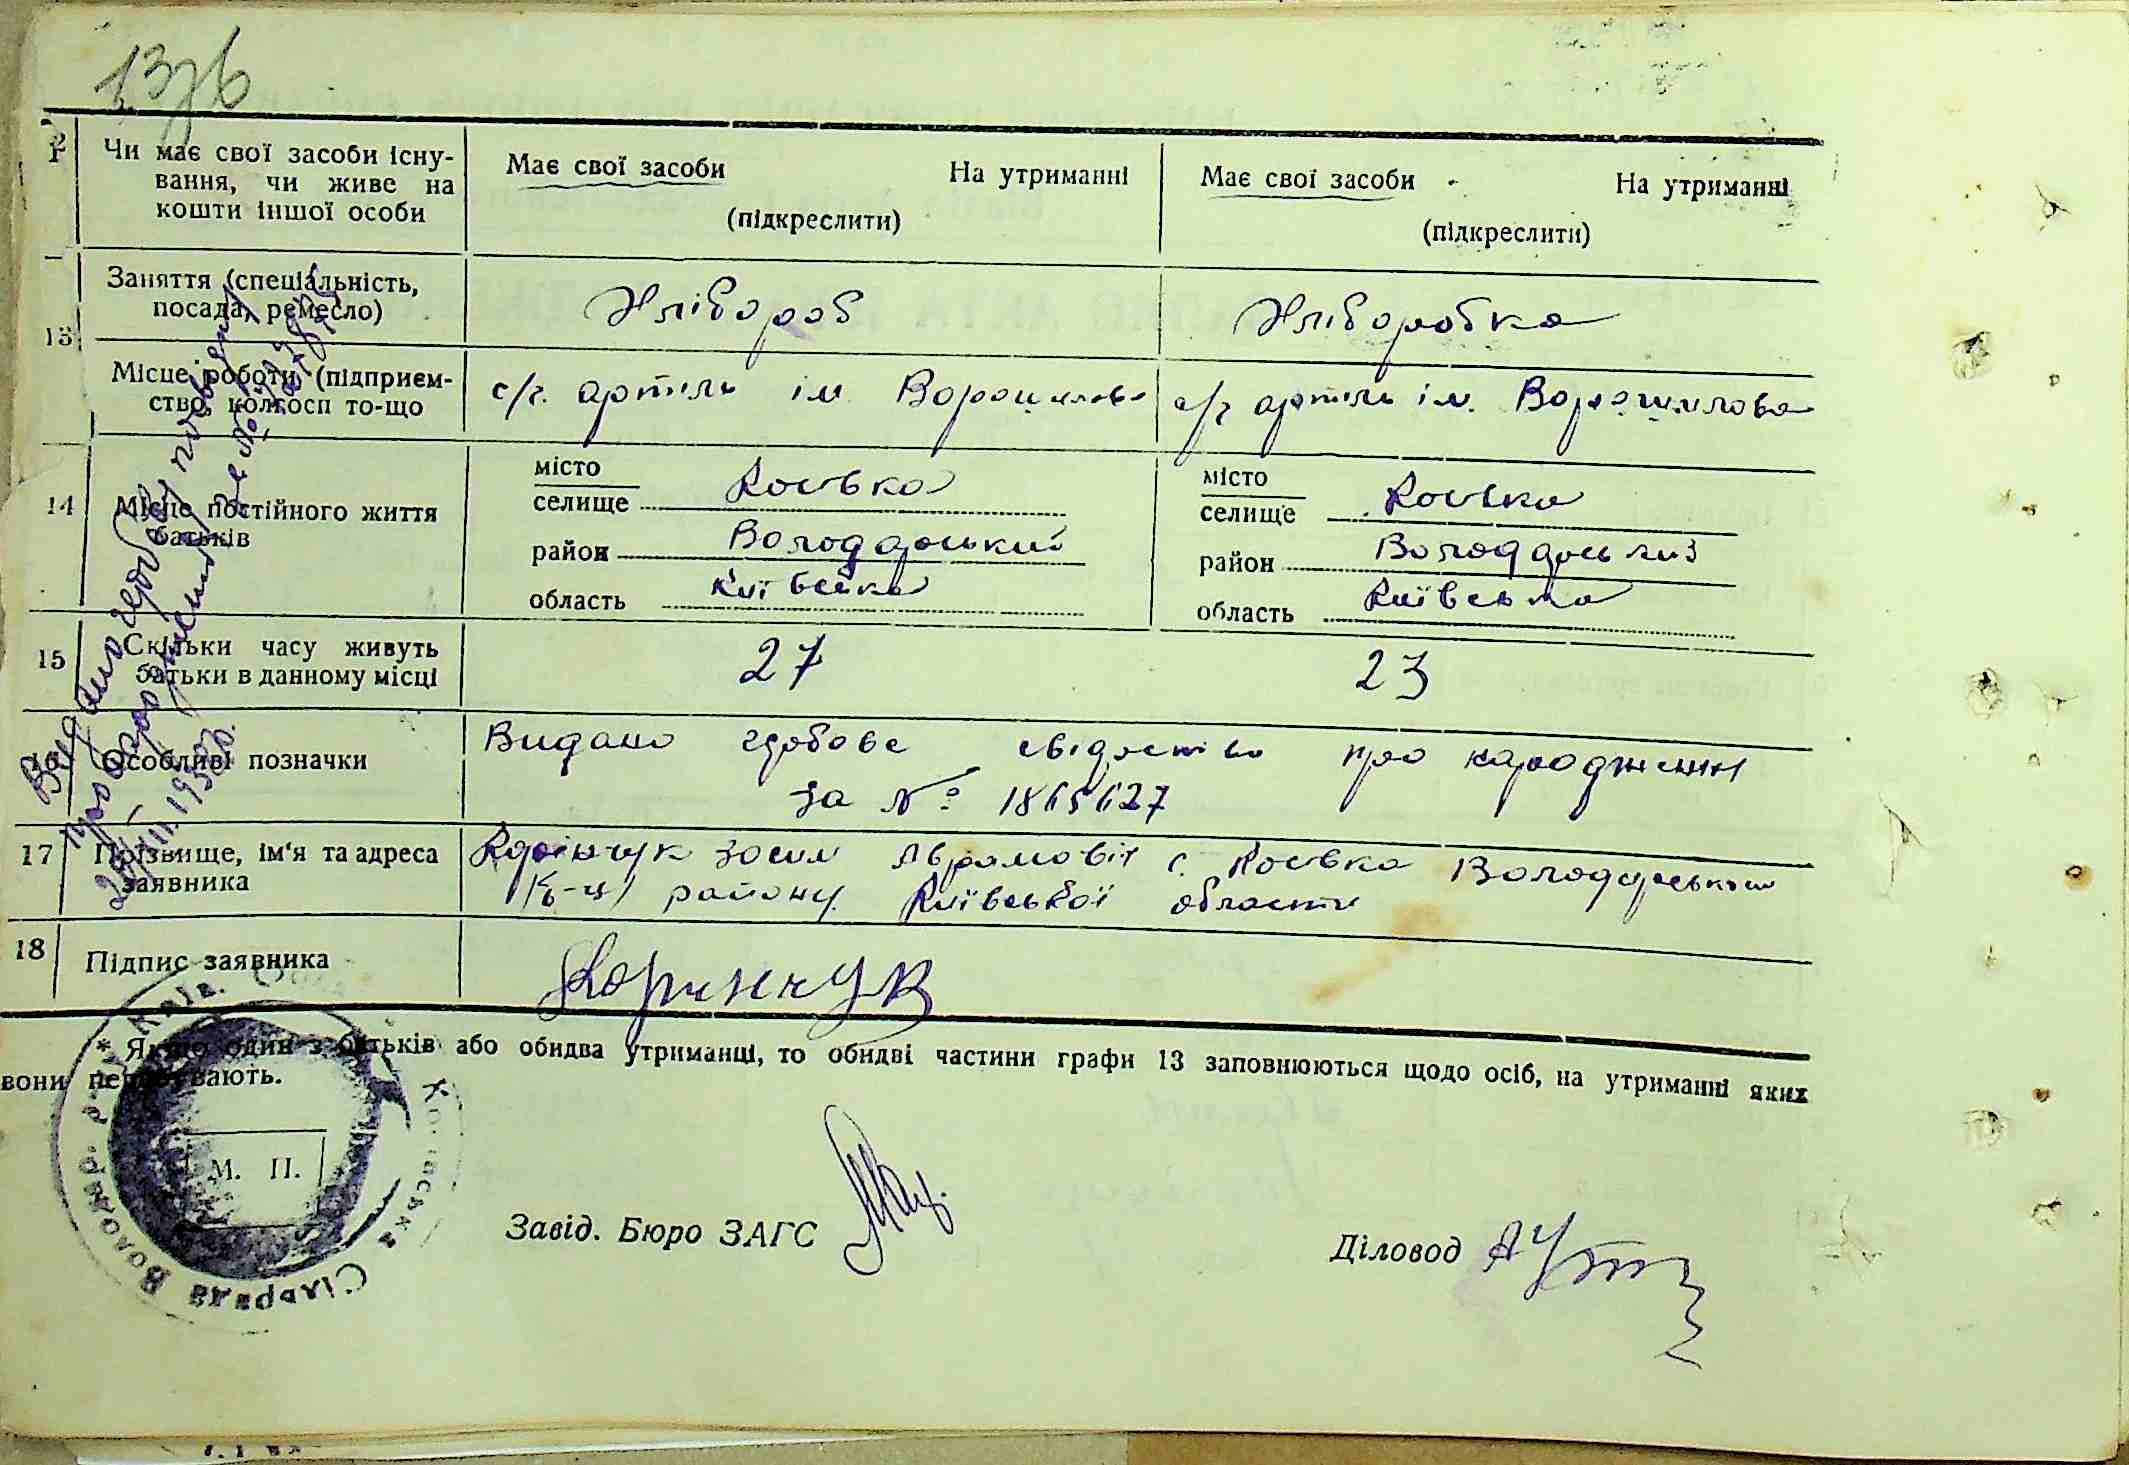 13зв
12 Чи має свої засоби існу-
вання, чи живе на
кошти іншої особи
Має свої засоби На утриманні
(підкреслити)
Має свої засоби На утриманні
(підкреслити)
13 Заняття (спеціальність,
посада, ремесло)
Хлібороб
Хліборобка
Місце роботи (підприєм-
ство, колгосп то-що
с/г. артіль ім Ворошилова
с/г артіль ім. Ворошилова
14 Місце постійного життя
батьків
місто
селище Косівка
район Володарський
область Київська
місто
селище Косівка
район Володарський
область Київська
15 Скільки часу живуть
батьки в данному місці
27
23
16 Особливі позначки
Видано здобове свідоство про народження
за № 1865627
17 Прізвище, ім'я та адреса
заявника
Корінчук Зосим Аврамовіч с. Косівка Володарського
району Київської області
18 Підпис заявника
Коринчук
* Якщо один з батьків або обидва утриманці, то обидві частини графи 13 заповнюються щодо осіб, на утриманні яких
вони перебувають.
М. П.
Завід. Бюро ЗАГС
Діловод
Видано
Косівська Сільрада Володар. р.